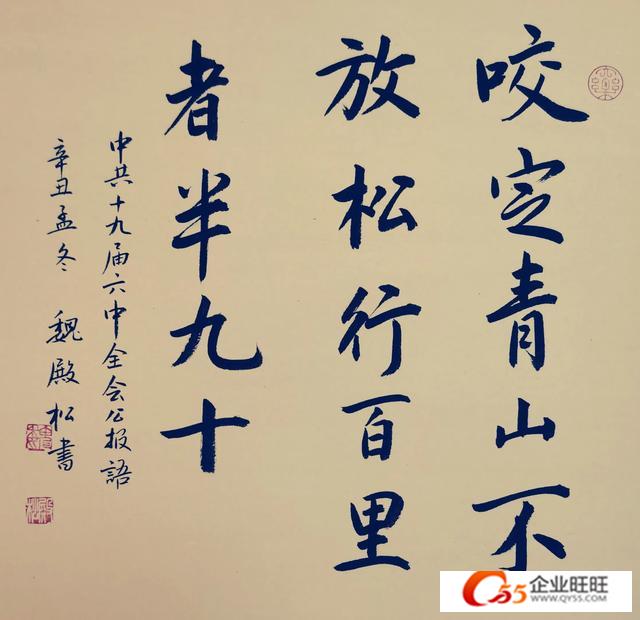 咬定青山不
放松行百里
者半九十
中共十九届六中全会公报語
辛丑孟冬 魏殿松書
55企业旺旺
WWW.QY55.COM